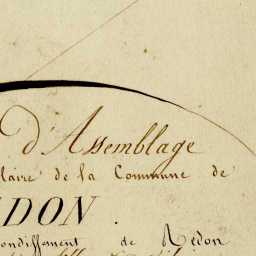 d'Assemblage
laire de la Commune de
DON.
ondissement de Redon